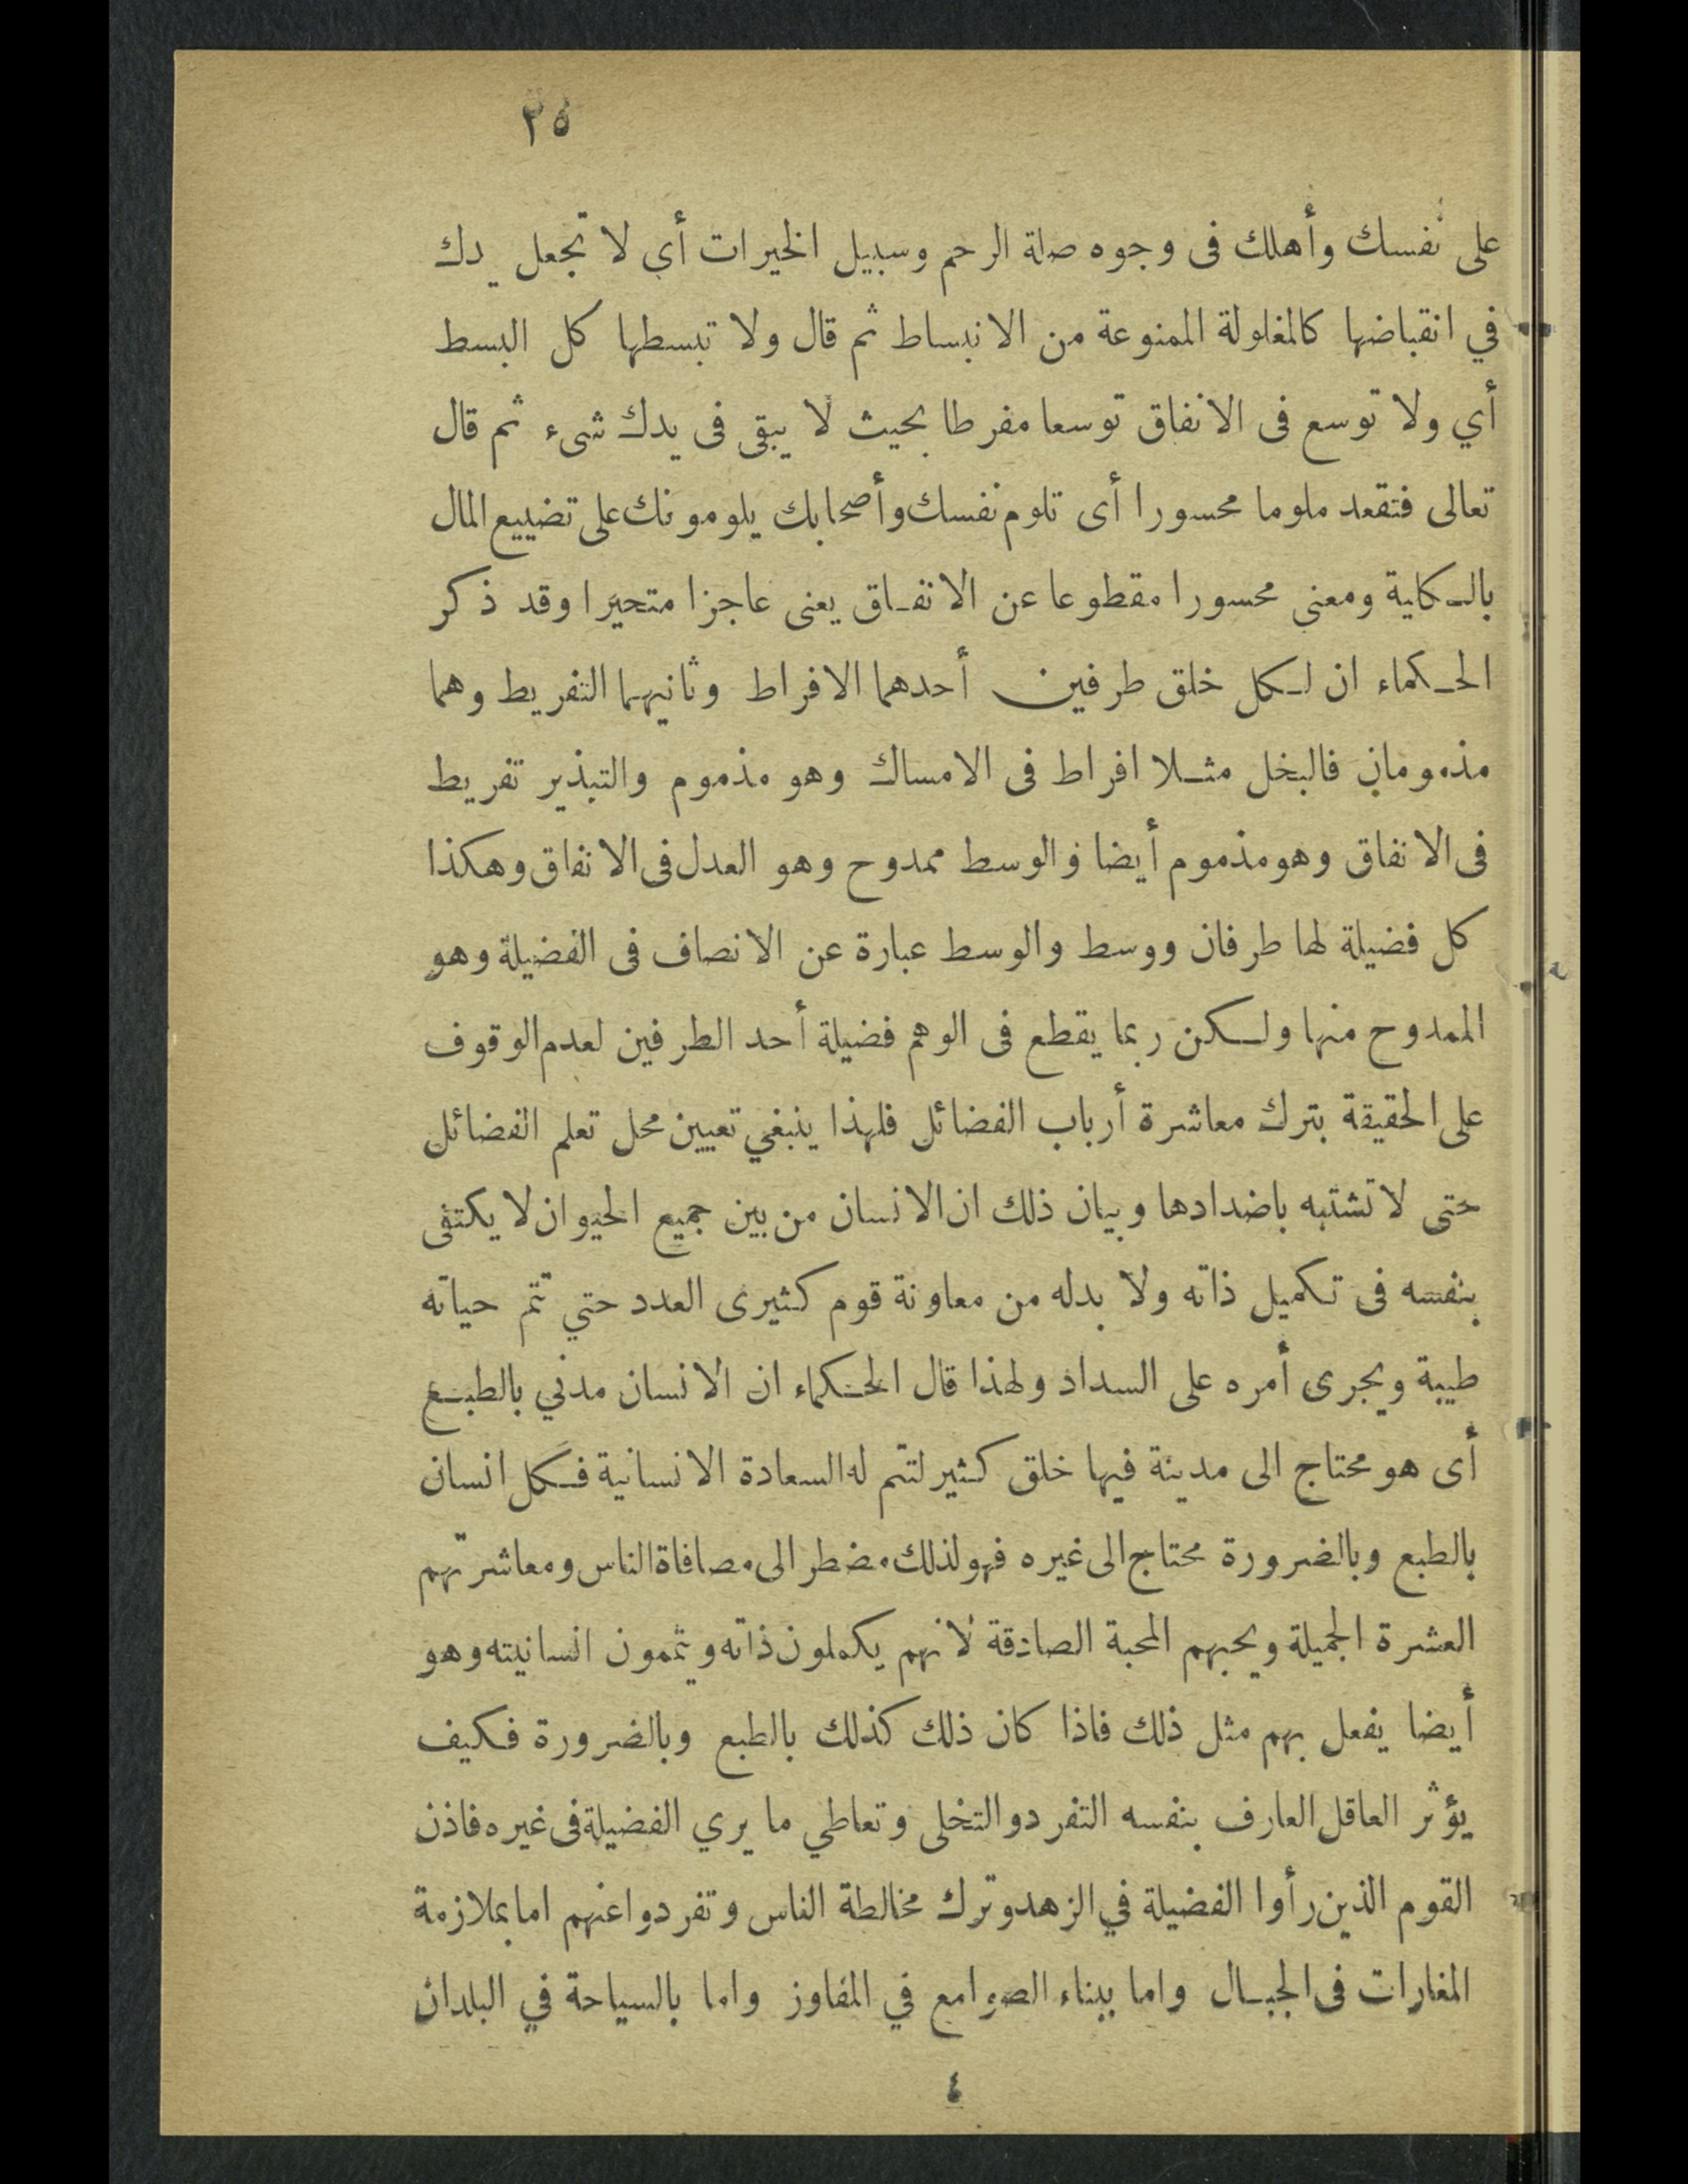 ٢٥
على نفسك وأهلك فى وجوه صلة الرحم وسبيل الخيرات أي لا تجعل يدك
في انقباضها كالمغلولة الممنوعة من الانبساط ثم قال ولا تبسطها كل البسط
أي ولا توسع فى الانفاق توسعا مفرطا بحيث لا يبقى فى يدك شىء ثم قال
تعالى فتقعد ملوما محسورا أى تلوم نفسك وأصحابك يلومونك على تضييع المال
بالـكلية ومعنى محسورا مقطوعا عن الانفـاق يعنى عاجزا متحيرا وقد ذكر
الحـكماء ان لـكل خلق طرفين أحدهما الافراط وثانيهما التفريط وهما
مذمومان فالبخل مثـلا افراط فى الامساك وهو مذموم والتبذير تفريط
فى الانفاق وهو مذموم أيضا والوسط ممدوح وهو العدل فى الانفاق وهكذا
كل فضيلة لها طرفان ووسط والوسط عبارة عن الانصاف فى الفضيلة وهو
الممدوح منها ولـكن ربما يقطع فى الوهم فضيلة أحد الطرفين لعدم الوقوف
على الحقيقة بترك معاشرة أرباب الفضائل فلهذا ينبغي تعيين محل تعلم الفضائل
حتى لا تشتبه باضدادها وبيان ذلك ان الانسان من بين جميع الحيوان لا يكتفى
بنفسه فى تـكميل ذاته ولا بدله من معاونة قوم كثيرى العدد حتي تتم حياته
طيبة ويجرى أمره على السداد ولهذا قال الحـكماء ان الانسان مدني بالطبـع
أى هو محتاج الى مدينة فيها خلق كثير لتتم له السعادة الانسانية فـكل انسان
بالطبع وبالضرورة محتاج الى غيره فهو لذلك مضطر الى مصافاة الناس ومعاشرتهم
العشرة الجميلة ويحبهم المحبة الصادقة لانهم يكملون ذاته ويتممون انسانيته وهو
أيضا يفعل بهم مثل ذلك فاذا كان ذلك كذلك بالطبع وبالضرورة فـكيف
يؤثر العاقل العارف بنفسه التفرد والتخلى وتعاطي ما يري الفضيلة فى غيره فاذن
القوم الذين رأوا الفضيلة في الزهد وترك مخالطة الناس وتفردوا عنهم اما بملازمة
المغارات فى الجبـال واما ببناء الصوامع في المفاوز واما بالسياحة في البلدان
٤